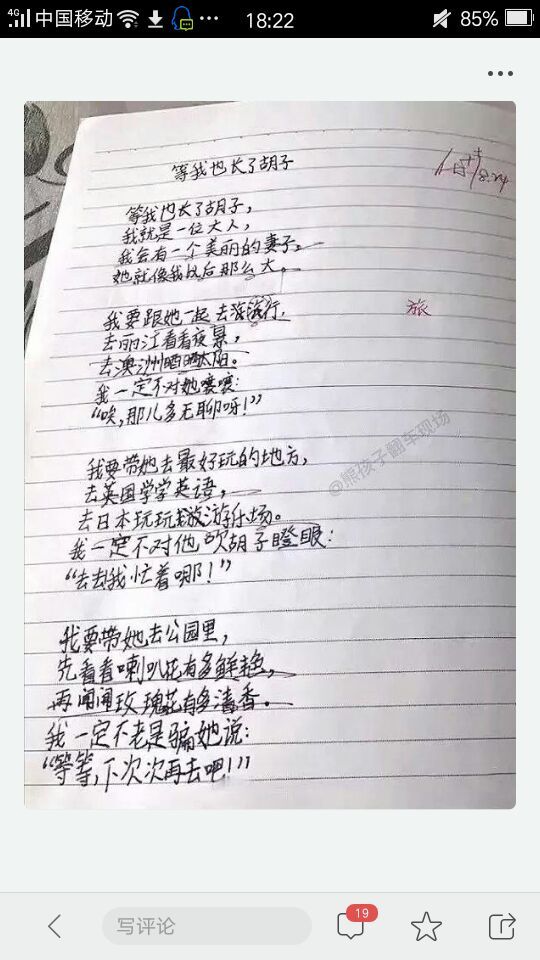 4G 中国移动 18:22 85%
等我也长了胡子
佳+ 8.24
等我也长了胡子，
我就是一位大人，
我会有一个美丽的妻子。
她就像我以后那么大。
我要跟她一起去游行，
旅
去丽江看看夜景，
去澳洲晒晒太阳。
我一定不对她嚷嚷：
“唉，那儿多无聊呀！”
我要带她去最好玩的地方，
去英国学学英语，
去日本玩玩游乐场。
我一定不对他吹胡子瞪眼：
“去去我忙着哪！”
@熊孩子翻车现场
我要带她去公园里，
先看看喇叭花有多鲜艳，
再闻闻玫瑰花有多清香。
我一定不老是骗她说：
“等等，下次次再去吧！”
写评论
19